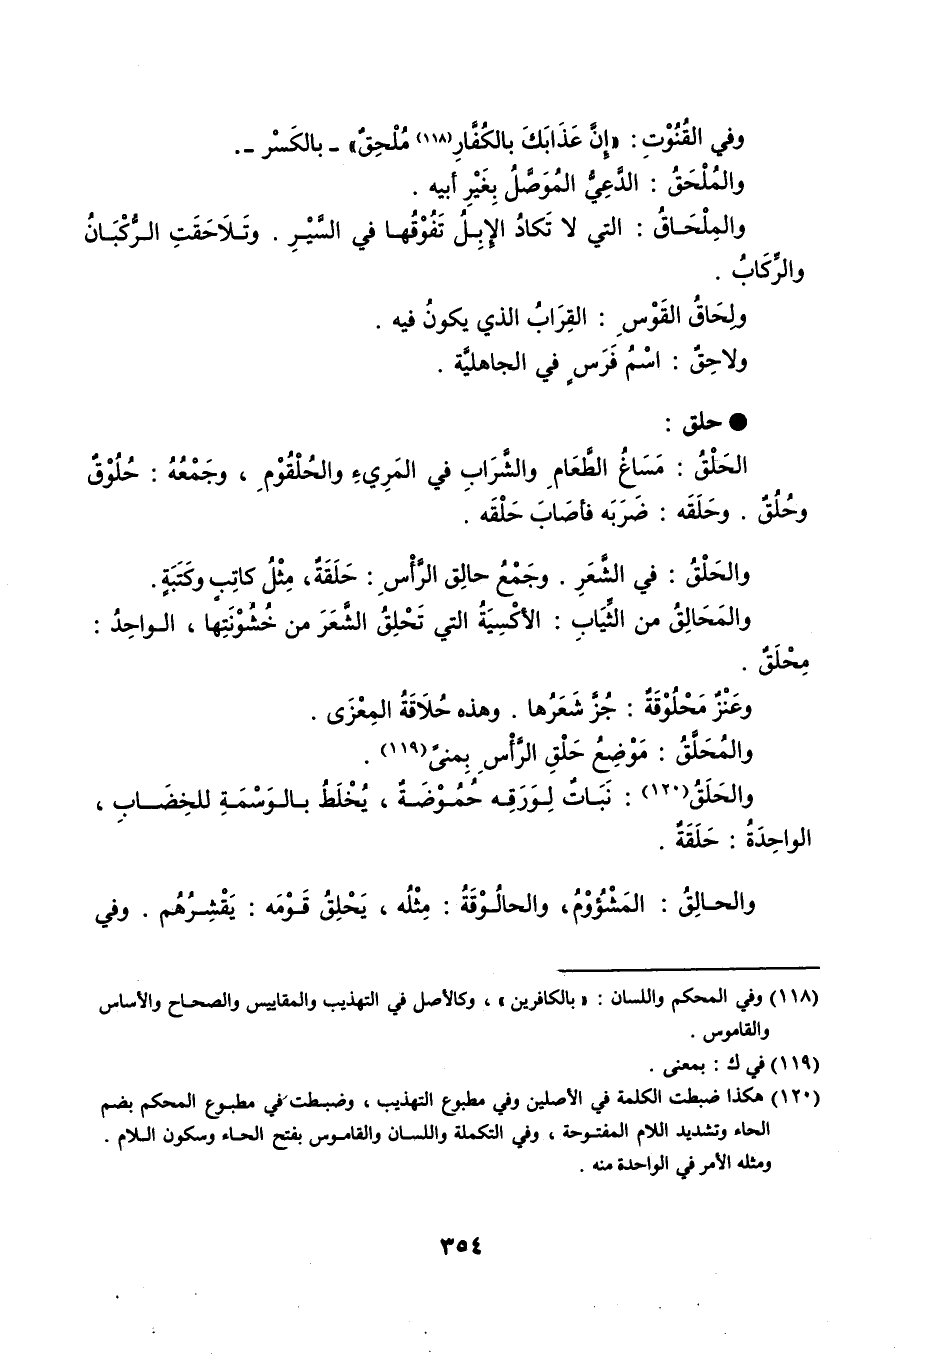 وفي القُنُوْتِ : «إنَّ عَذَابَكَ بالكُفَّارِ(١١٨) مُلْحِقٌ» ـ بالكَسْر ـ.
والمُلْحَقُ : الدَّعِيُّ المُوَصَّلُ بِغَيْرِ أبيه .
والمِلْحَـاقُ : التي لا تَكادُ الإِبِـلُ تَفُوْقُهـا في السَّيْـرِ . وتَـلَاحَقَتِ الـرُّكْبَـانُ
والرِّكَابُ .
ولِحَاقُ القَوْسِ : القِرَابُ الذي يكونُ فيه .
ولاحِقٌ : اسْمُ فَرَسٍ في الجاهليَّة .
● حلق :
الحَلْقُ : مَسَاغُ الطَّعَامِ والشَّرَابِ في المَرِيءِ والحُلْقُوْمِ ، وجَمْعُهُ : حُلُوْقٌ
وحُلُقٌ . وحَلَقَه : ضَرَبَه فأصَابَ حَلْقَه .
والحَلْقُ : في الشَّعَرِ . وجَمْعُ حالِق الرَّأْسِ : حَلَقَةٌ، مِثْلُ كاتِبٍ وكَتَبَةٍ.
والمَحَالِقُ من الثِّيَابِ : الأكْسِيَةُ التي تَحْلِقُ الشَّعَرَ من خُشُوْنَتِها ، الـواحِدُ :
مِحْلَقٌ .
وعَنْزٌ مَحْلُوْقَةٌ : جُزَّ شَعَرُها . وهذه حُلَاقَةُ المِعْزَى .
والمُحَلَّقُ : مَوْضِعُ حَلْقِ الرَّأْسِ بِمنىً(١١٩) .
والحَلَقُ(١٢٠) : نَبَـاتٌ لِـوَرَقِـه حُمُـوْضَـةٌ ، يُخْلَطُ بـالـوَسْمَـةِ للخِضَـــابِ ،
الواحِدَةُ : حَلَقَةٌ .
والحـالِقُ : المَشْؤُوْمُ، والحالُـوْقَةُ : مِثْلُه ، يَحْلِقُ قَـوْمَه : يَقْشِـرُهُم . وفي
(١١٨) وفي المحكم واللسان : «بالكافرين» ، وكالأصل في التهذيب والمقاييس والصحـاح والأساس
والقاموس .
(١١٩) في ك : بمعنى .
(١٢٠) هكذا ضبطت الكلمة في الأصلين وفي مطبوع التهذيب ، وضبـطت في مطبـوع المحكم بضم
الحاء وتشديد اللام المفتـوحة ، وفي التكملة واللسان والقامـوس بفتح الحـاء وسكون الـلام .
ومثله الأمر في الواحدة منه .
٣٥٤